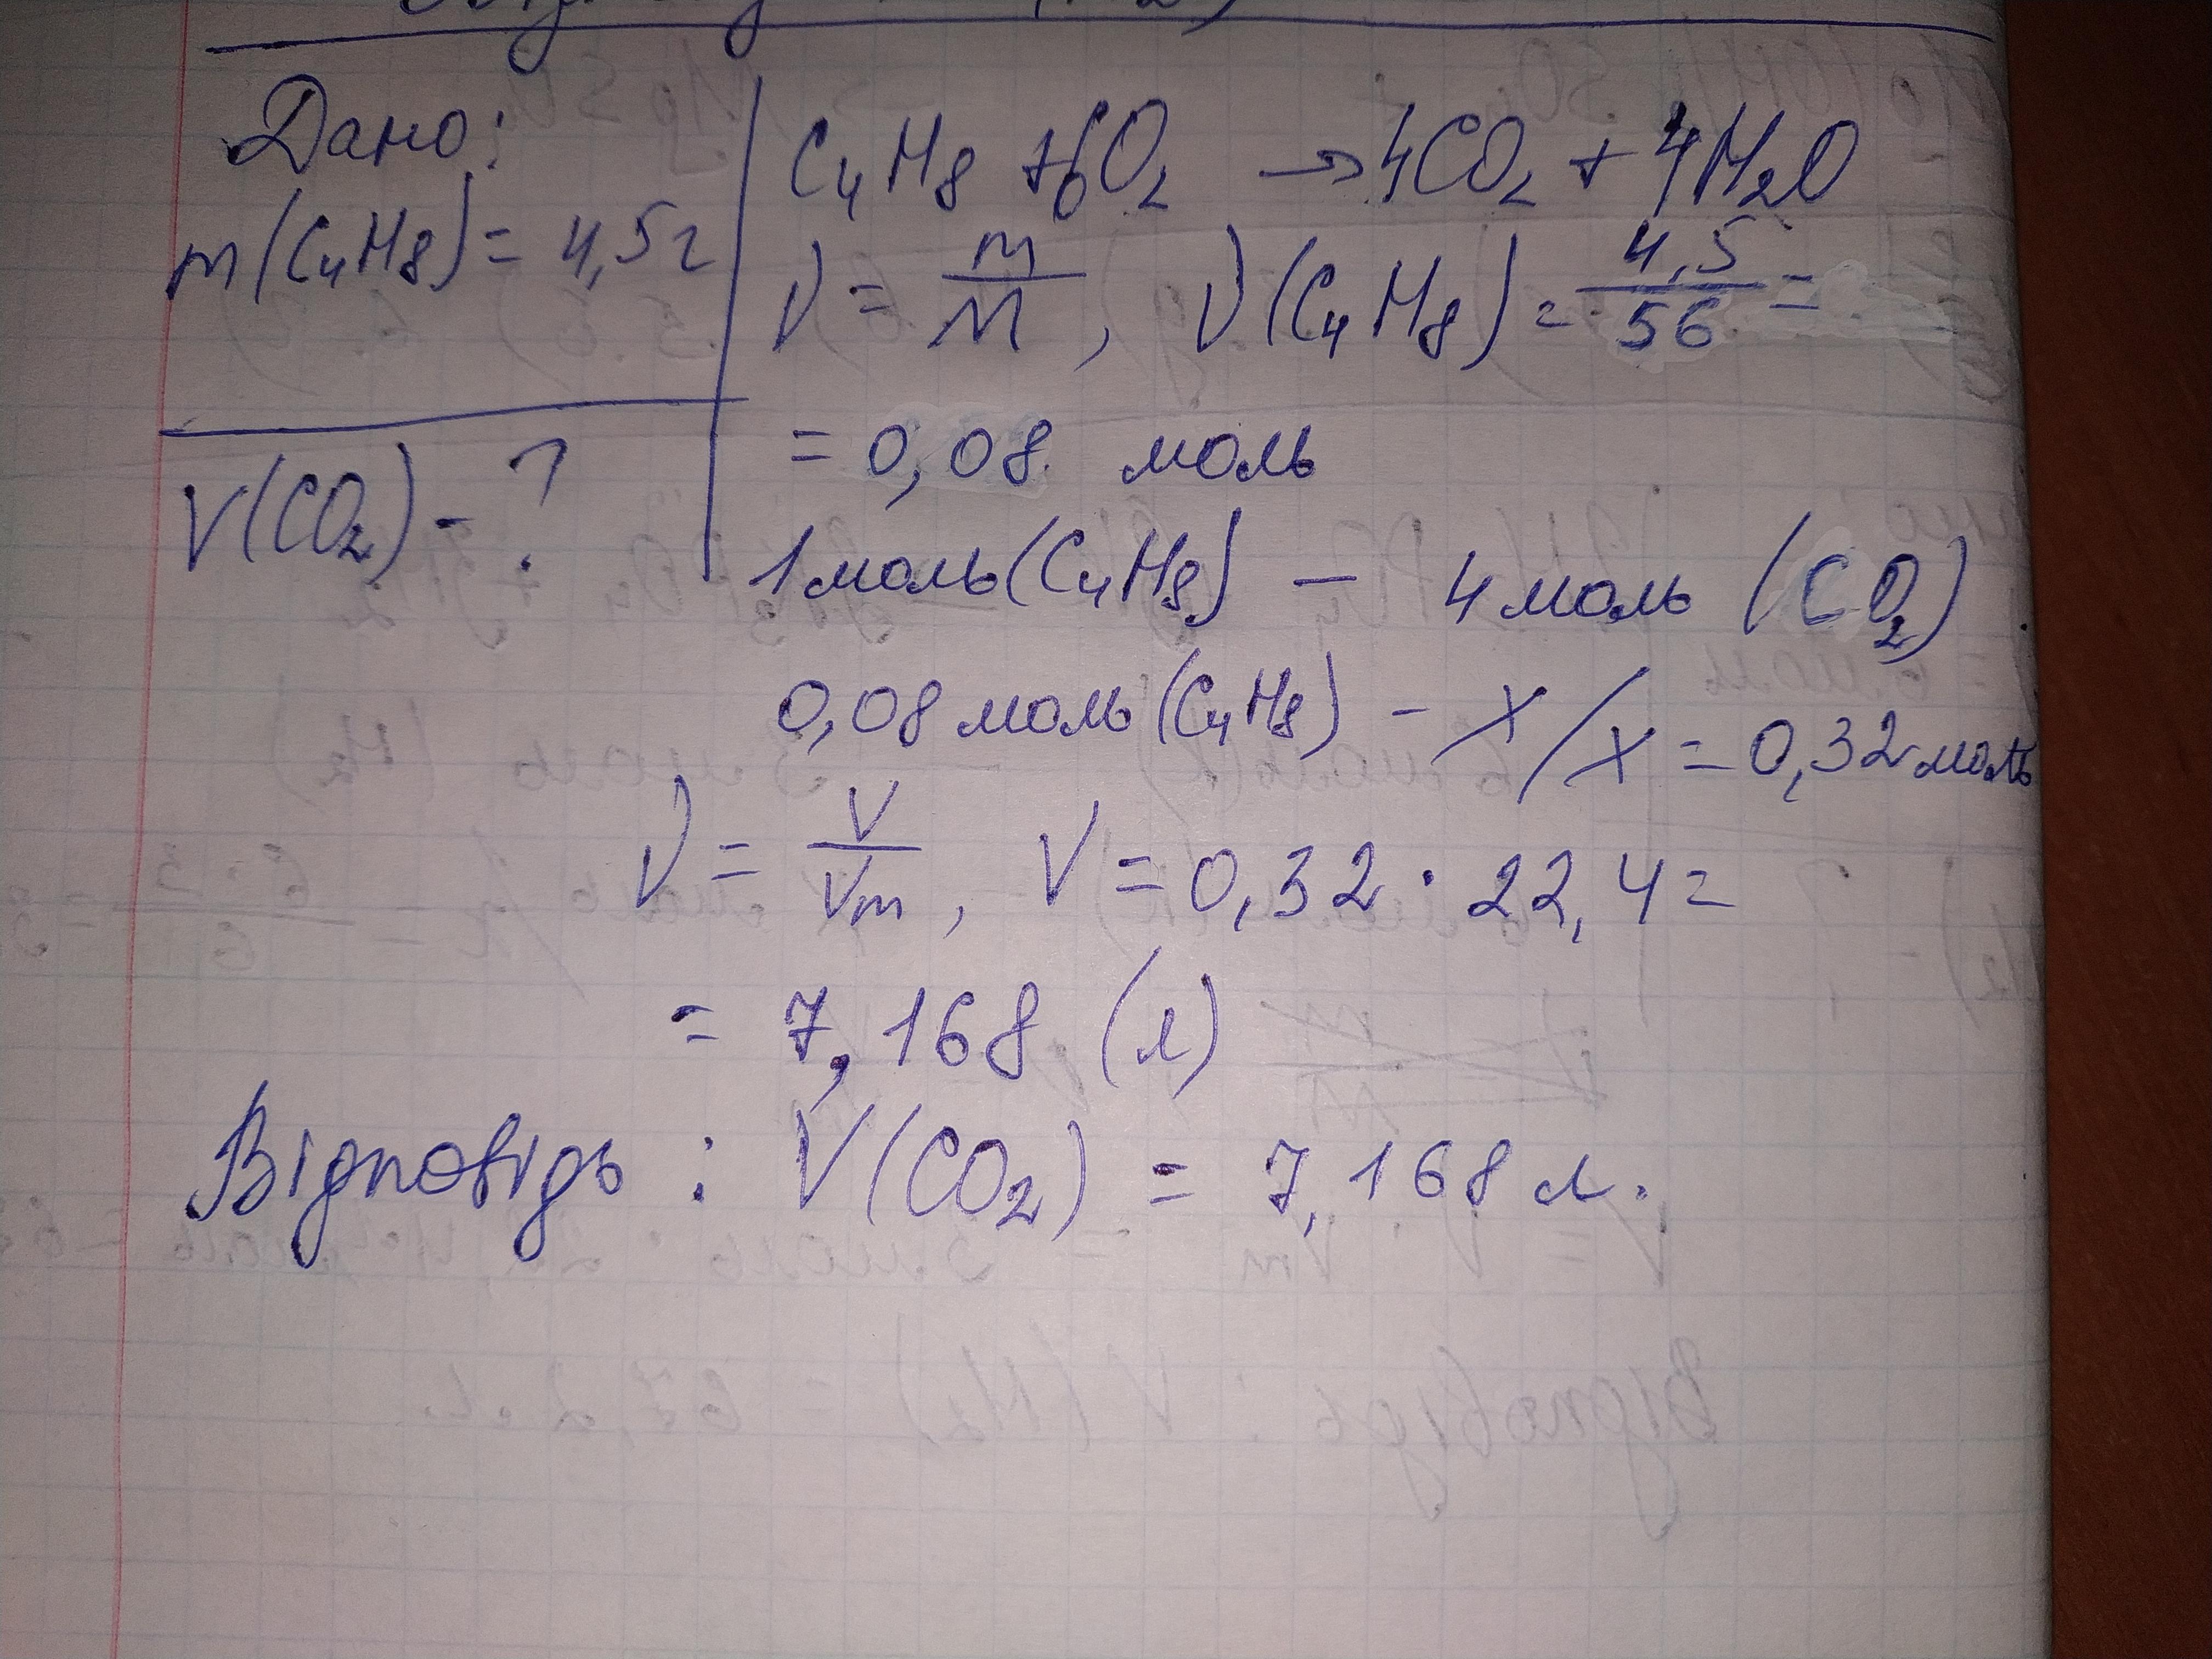 Дано:
m(C₄H₈) = 4,5г
V(CO₂) - ?
C₄H₈ + 6O₂ → 4CO₂ + 4H₂O
ν = m/M, ν(C₄H₈) = 4,5/56 =
= 0,08 моль
1 моль (C₄H₈) — 4 моль (CO₂)
0,08 моль (C₄H₈) - x / x = 0,32 моль
ν = V/Vm, V = 0,32 · 22,4 =
= 7,168 (л)
Відповідь : V(CO₂) = 7,168 л.